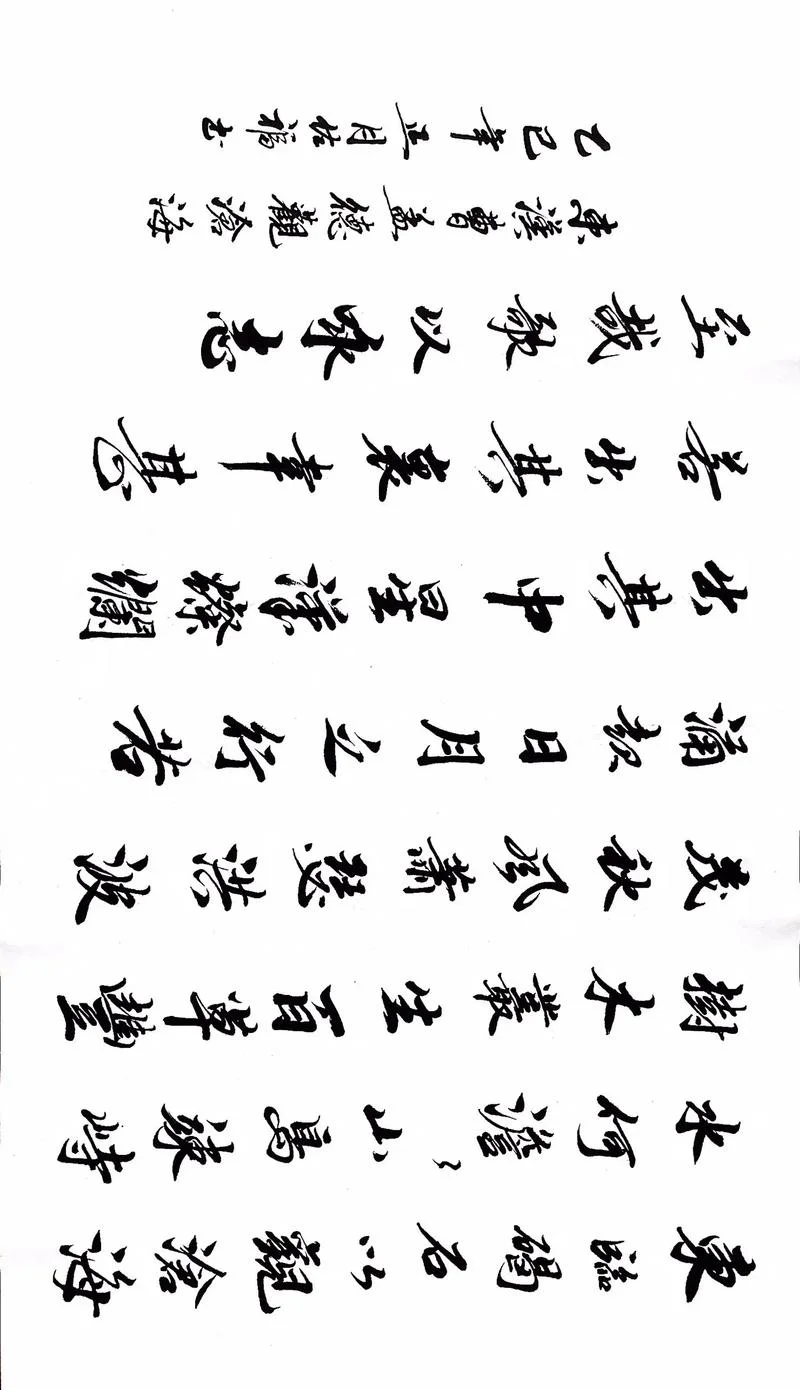 東臨碣石以觀滄海
水何澹〻山島竦峙
樹木叢生百草豐
茂秋風蕭瑟洪波
涌起日月之行若
出其中星漢燦爛
若出其裏幸甚
至哉歌以咏志
東漢曹孟德觀滄海
乙巳年五月书